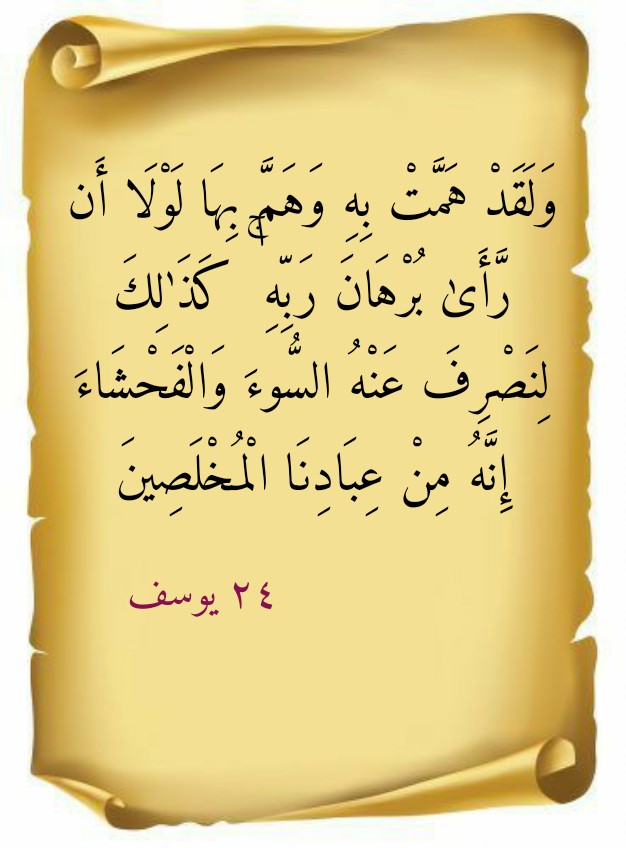 وَلَقَدْ هَمَّتْ بِهِ وَهَمَّ بِهَا لَوْلَا أَن
رَّأَىٰ بُرْهَانَ رَبِّهِ ۚ كَذَٰلِكَ
لِنَصْرِفَ عَنْهُ السُّوءَ وَالْفَحْشَاءَ
إِنَّهُ مِنْ عِبَادِنَا الْمُخْلَصِينَ
٢٤ يوسف